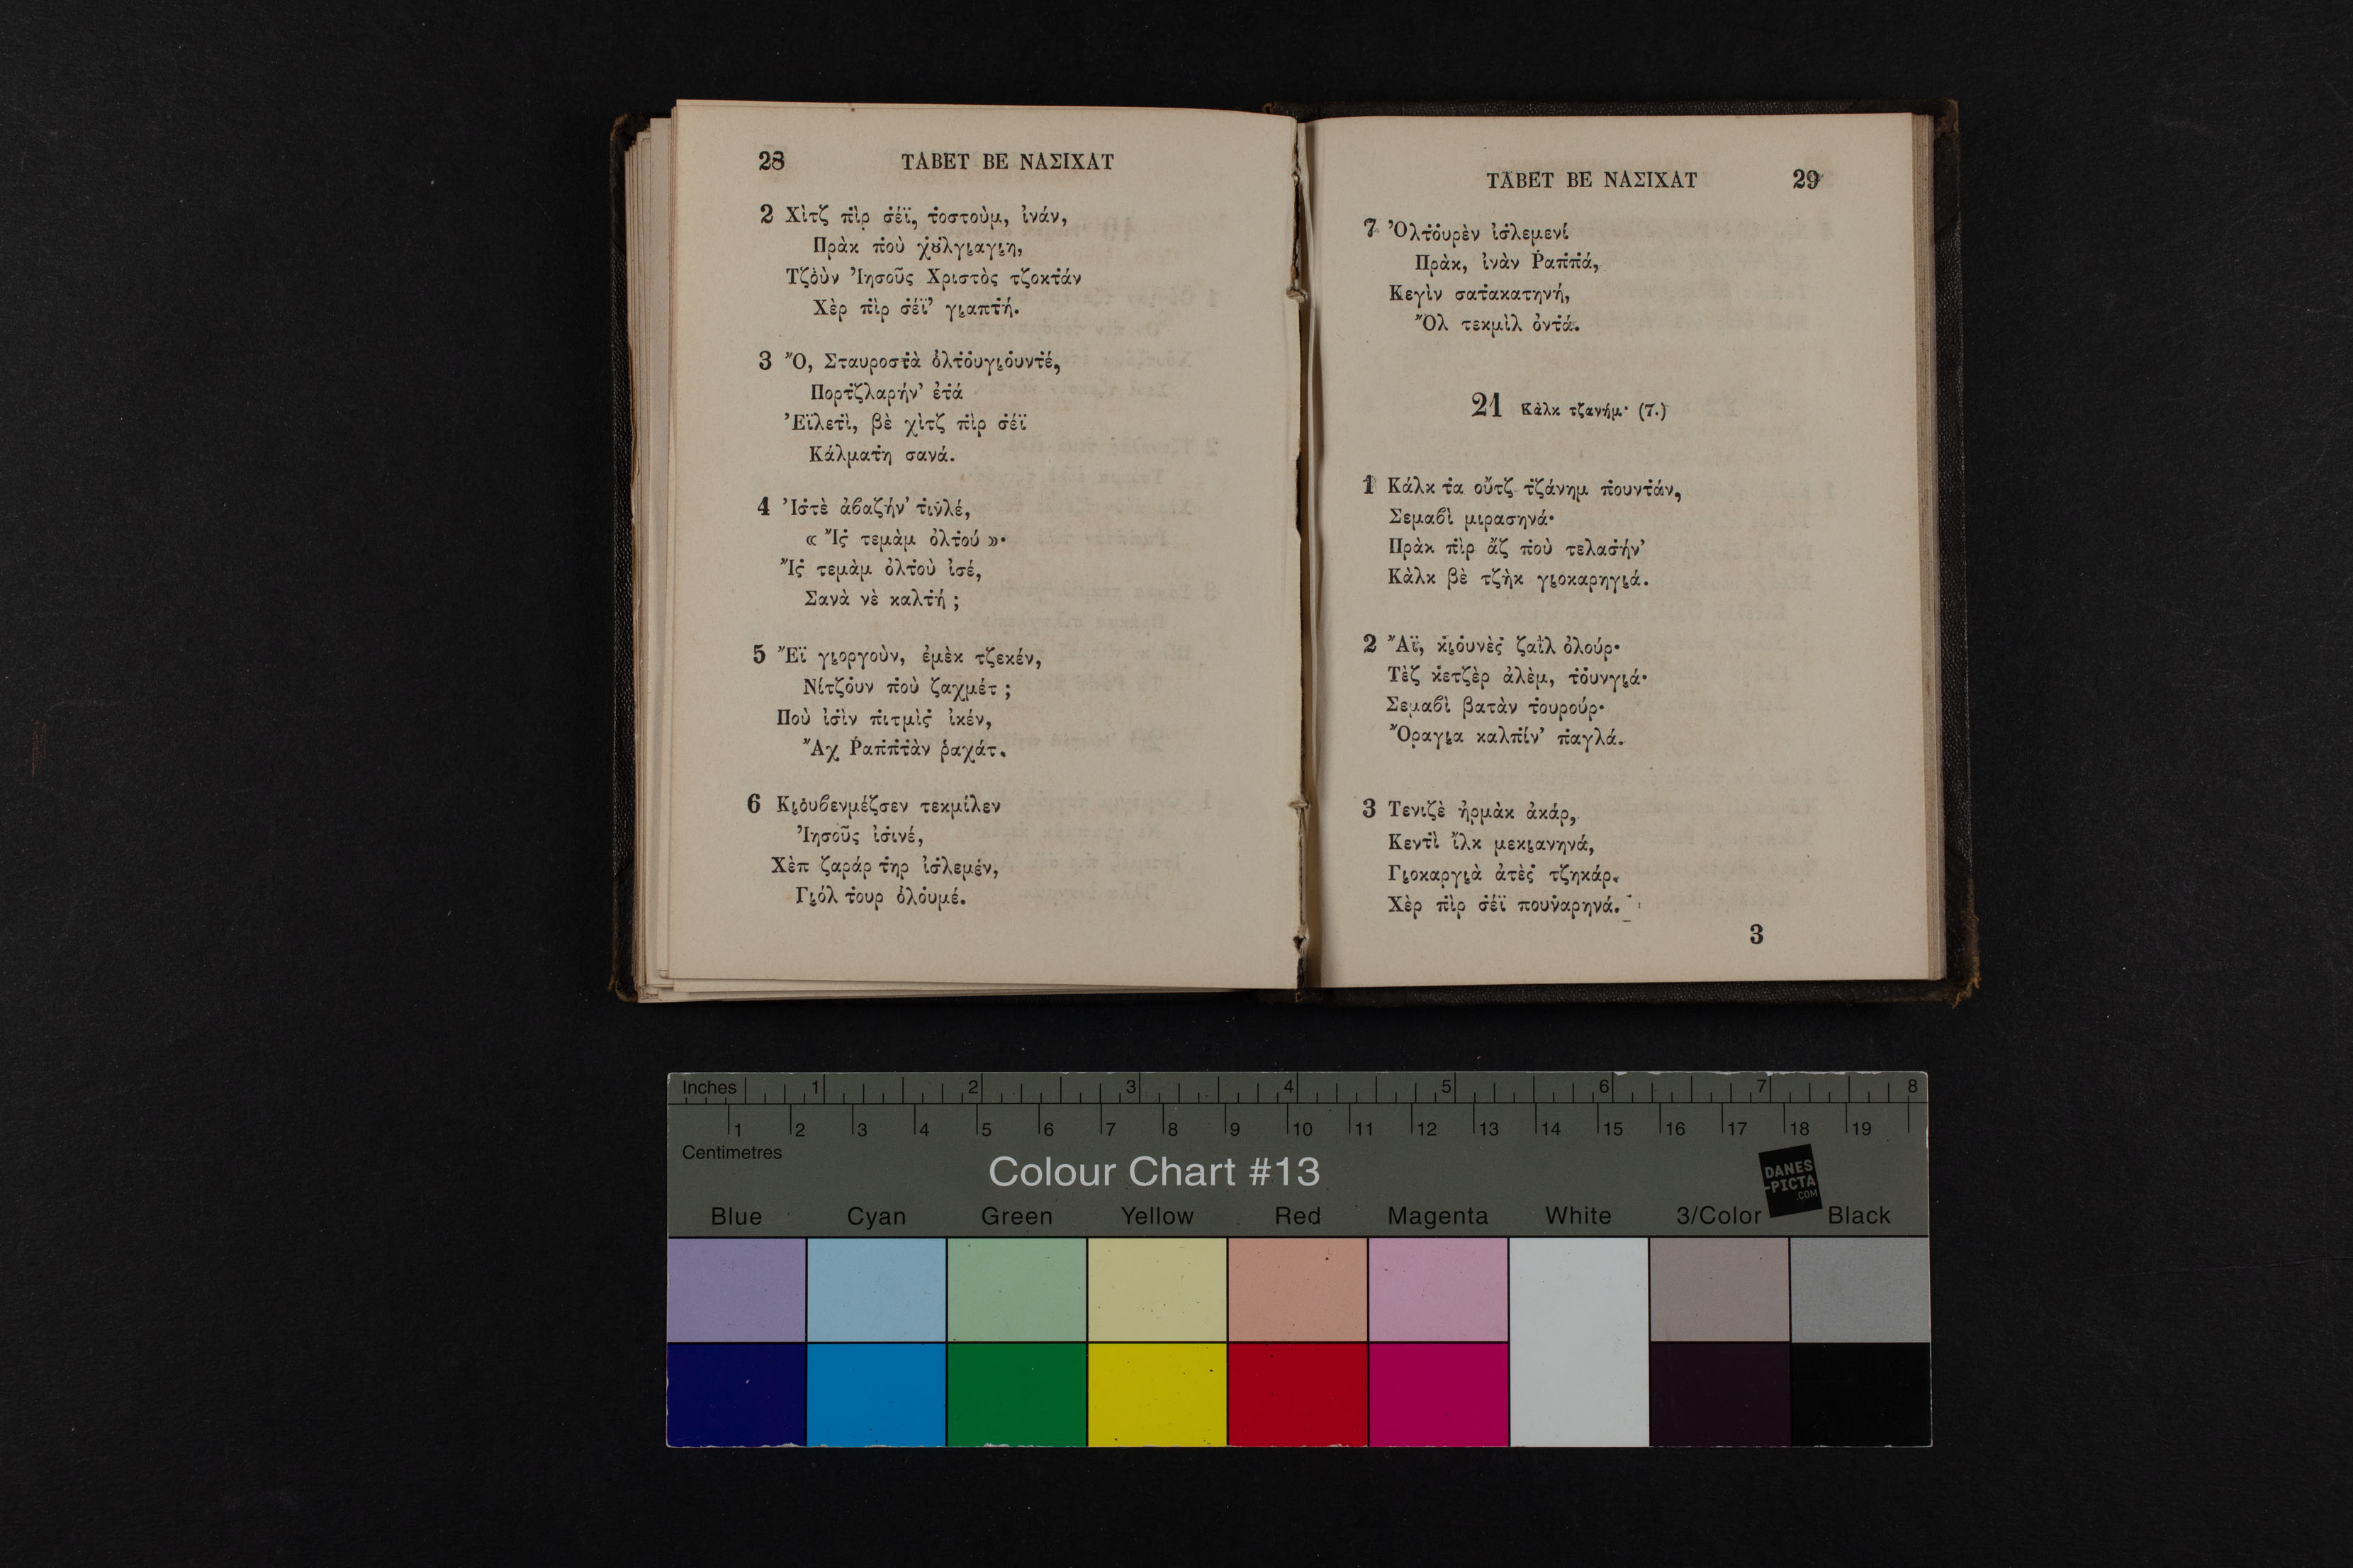 28 ΤΑΒΕΤ ΒΕ ΝΑΣΙΧΑΤ
2 Χὶτζ π̇ὶρ σ̇έϊ, τ̇οστοὺμ, ἰνάν,
Πρὰκ π̇οὺ χȣλγι̮αγι̮η,
Τζ̇οὺν Ἰησοῦς Χριστὸς τζοκτ̇άν
Χὲρ π̇ὶρ σ̇έϊ' γι̮απτ̇ή.
3 Ὄ, Σταυροστ̇ὰ ὀλτ̇ουγι̮ουντ̇έ,
Πορτζλαρήν' ἐτ̇ά
Ἐϊλετ̇ὶ, βὲ χὶτζ π̇ὶρ σ̇έϊ
Κάλματ̇η σανά.
4 Ἰσ̇τὲ ἀϐαζήν' τ̇ιν̇λέ,
« Ἴς̇ τεμὰμ ὀλτ̇ού »·
Ἴς̇ τεμὰμ ὀλτ̇οὺ ἰσέ,
Σανὰ νὲ καλτ̇ή ;
5 Ἔϊ γι̮οργοὺν, ἐμὲκ τζεκέν,
Νίτζ̇ουν π̇οὺ ζαχμέτ ;
Ποὺ ἰσ̇ὶν π̇ιτμὶς̇ ἰκέν,
Ἄχ Ῥαπ̇π̇τ̇ὰν ῥαχάτ.
6 Κι̮ουϐενμέζσεν τεκμίλεν
Ἰησοῦς ἰσ̇ινέ,
Χὲπ ζαράρ τ̇ηρ ἰσ̇λεμέν,
Γι̮όλ τ̇ουρ ὀλ̇ουμέ.
ΤΑΒΕΤ ΒΕ ΝΑΣΙΧΑΤ 29
7 Ὀλτ̇ουρὲν ἰσ̇λεμενί
Πρὰκ, ἰνὰν Ῥαπ̇π̇ά,
Κεγὶν σατ̇ακατηνή,
Ὄλ τεκμὶλ ὀντ̇ά.
21 Κὰλκ τζανήμ· (7.)
1 Κάλκ τ̇α οὔτζ τζάνημ π̇ουντ̇άν,
Σεμαϐὶ μιρασηνά·
Πρὰκ π̇ὶρ ἄζ π̇οὺ τελασ̇ήν'
Κὰλκ βὲ τζὴκ γι̮οκαρηγι̮ά.
2 Ἄϊ, κι̮ουνὲς̇ ζαΐλ ὀλούρ·
Τὲζ κ̇ετζὲρ ἀλὲμ, τ̇ουνγι̮ά·
Σεμαϐὶ βατὰν τ̇ουρούρ·
Ὄραγι̮α καλπ̇ίν' π̇αγλά.
3 Τενιζὲ ἠρμὰκ ἀκάρ,
Κεντ̇ὶ ἴλκ μεκι̮ανηνά,
Γι̮οκαργι̮ὰ ἀτὲς̇ τζηκάρ.
Χὲρ π̇ὶρ σ̇έϊ πουν̇αρηνά.
3
Inches 1 2 3 4 5 6 7 8
1 2 3 4 5 6 7 8 9 10 11 12 13 14 15 16 17 18 19
Centimetres
Colour Chart #13
DANES
-PICTA
.COM
Blue Cyan Green Yellow Red Magenta White 3/Color Black